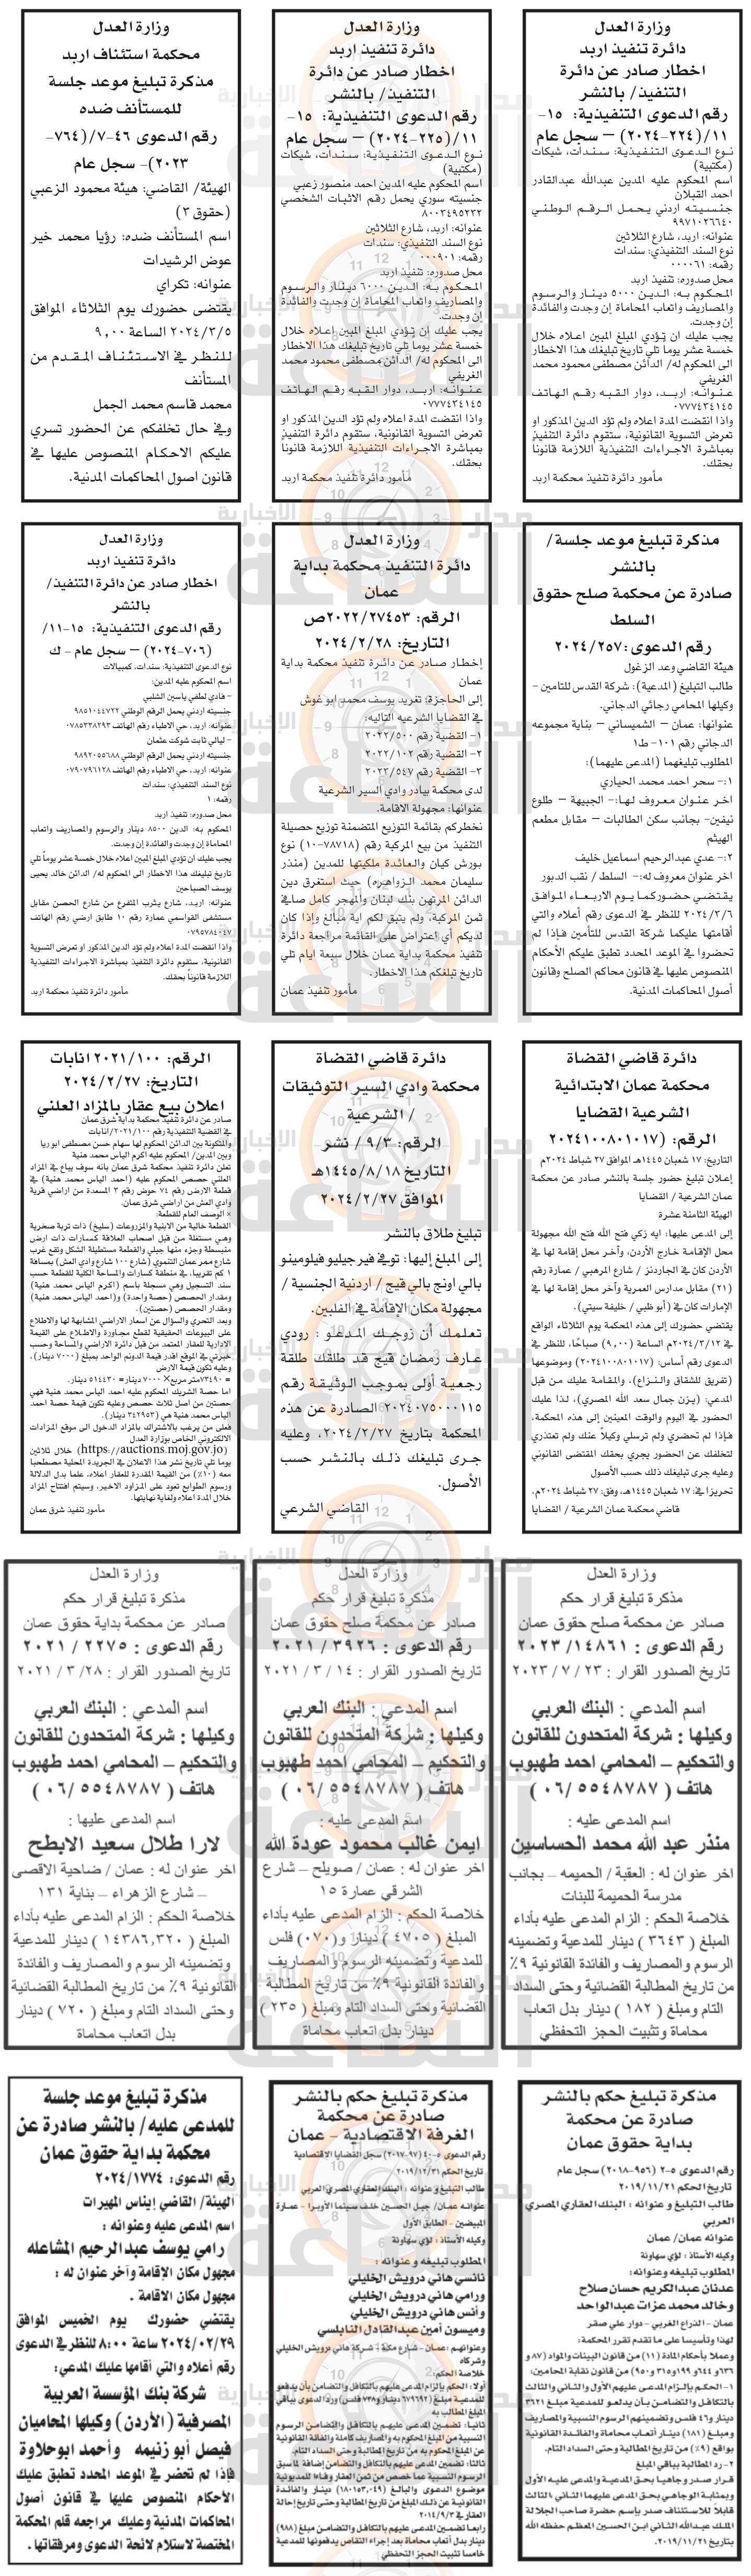 وزارة العدل
دائرة تنفيذ اربد
اخطار صادر عن دائرة
التنفيذ/ بالنشر
رقم الدعوى التنفيذية: ١٥-
١١/(٢٢٤-٢٠٢٤) – سجل عام
نوع الدعوى التنفيذية: سندات، شيكات
(مكتبية)
اسم المحكوم عليه المدين عبدالله عبدالقادر
احمد القبلان
جنسيته اردني يحمل الرقم الوطني
٩٩٧١٠٢٦٦٤٠
عنوانه: اربد، شارع الثلاثين
نوع السند التنفيذي: سندات
رقمه: ٠٠٠٠٦١
محل صدوره: تنفيذ اربد
المحكوم به: الدين ٥٠٠٠ دينار والرسوم
والمصاريف واتعاب المحاماة إن وجدت والفائدة
إن وجدت.
يجب عليك ان تؤدي المبلغ المبين اعلاه خلال
خمسة عشر يوماً تلي تاريخ تبليغك هذا الاخطار
الى المحكوم له/ الدائن مصطفى محمود محمد
الغريفي
عنوانه: اربد، دوار القبه رقم الهاتف
٠٧٧٧٤٣٤١٤٥
واذا انقضت المدة اعلاه ولم تؤد الدين المذكور او
تعرض التسوية القانونية، ستقوم دائرة التنفيذ
بمباشرة الاجراءات التنفيذية اللازمة قانوناً
بحقك.
مأمور دائرة تنفيذ محكمة اربد
وزارة العدل
دائرة تنفيذ اربد
اخطار صادر عن دائرة
التنفيذ/ بالنشر
رقم الدعوى التنفيذية: ١٥-
١١/(٢٢٥-٢٠٢٤) – سجل عام
نوع الدعوى التنفيذية: سندات، شيكات
(مكتبية)
اسم المحكوم عليه المدين احمد منصور زعبي
جنسيته سوري يحمل رقم الاثبات الشخصي
٨٠٠٣٤٩٥٢٢٢
عنوانه: اربد، شارع الثلاثين
نوع السند التنفيذي: سندات
رقمه: ٠٠٠٩٠١
محل صدوره: تنفيذ اربد
المحكوم به: الدين ٦٠٠٠ دينار والرسوم
والمصاريف واتعاب المحاماة إن وجدت والفائدة
إن وجدت.
يجب عليك ان تؤدي المبلغ المبين اعلاه خلال
خمسة عشر يوماً تلي تاريخ تبليغك هذا الاخطار
الى المحكوم له/ الدائن مصطفى محمود محمد
الغريفي
عنوانه: اربد، دوار القبه رقم الهاتف
٠٧٧٧٤٣٤١٤٥
واذا انقضت المدة اعلاه ولم تؤد الدين المذكور او
تعرض التسوية القانونية، ستقوم دائرة التنفيذ
بمباشرة الاجراءات التنفيذية اللازمة قانوناً
بحقك.
مأمور دائرة تنفيذ محكمة اربد
وزارة العدل
محكمة استئناف اربد
مذكرة تبليغ موعد جلسة
للمستأنف ضده
رقم الدعوى ٤٦-٧/(٧٦٤-
٢٠٢٣)- سجل عام
الهيئة/ القاضي: هيئة محمود الزعبي
(حقوق ٣)
اسم المستأنف ضده: رؤيا محمد خير
عوض الرشيدات
عنوانه: تكراي
يقتضى حضورك يوم الثلاثاء الموافق
٢٠٢٤/٣/٥ الساعة ٩,٠٠
للنظر في الاستئناف المقدم من
المستأنف
محمد قاسم محمد الجمل
وفي حال تخلفكم عن الحضور تسري
عليكم الاحكام المنصوص عليها في
قانون اصول المحاكمات المدنية.
مذكرة تبليغ موعد جلسة/
بالنشر
صادرة عن محكمة صلح حقوق
السلط
رقم الدعوى :٢٠٢٤/٢٥٧
هيئة القاضي وعد الزغول
طالب التبليغ (المدعية): شركة القدس للتامين –
وكيلها المحامي رجائي الدجاني.
عنوانها: عمان – الشميساني – بناية مجموعه
الدجاني رقم ١٠١- ط١
المطلوب تبليغهما (المدعى عليهما):
١- سحر احمد محمد الحياري
اخر عنوان معروف لها:- الجبيهة – طلوع
نيفين- بجانب سكن الطالبات – مقابل مطعم
الهيثم
٢- عدي عبدالرحيم اسماعيل خليف
اخر عنوان معروف له:- السلط / نقب الدبور
يقتضي حضوركما يوم الاربعاء الموافق
٢٠٢٤/٣/٦ للنظر في الدعوى رقم أعلاه والتي
أقامتها عليكما شركة القدس للتأمين فإذا لم
تحضروا في الموعد المحدد تطبق عليكم الأحكام
المنصوص عليها في قانون محاكم الصلح وقانون
أصول المحاكمات المدنية.
وزارة العدل
دائرة التنفيذ محكمة بداية
عمان
الرقم: ٢٠٢٢/٢٧٤٥٣ص
التاريخ: ٢٠٢٤/٢/٢٨
إخطار صادر عن دائرة تنفيذ محكمة بداية
عمان
إلى الحاجزة: تغريد يوسف محمد ابو غوش
في القضايا الشرعيه التاليه:
١- القضية رقم ٢٠٢٢/٥٠٠
٢- القضية رقم ٢٠٢٢/١٠٢
٣- القضية رقم ٢٠٢٣/٥٤٧
لدى محكمة بيادر وادي السير الشرعية
عنوانها: مجهولة الاقامة.
نخطركم بقائمة التوزيع المتضمنة توزيع حصيلة
التنفيذ من بيع المركبة رقم (٧٨٧١٨-١٠) نوع
بورش كيان والعائدة ملكيتها للمدين (منذر
سليمان محمد الزواهره) حيث استغرق دين
الدائن المرتهن بنك لبنان والمهجر كامل صافي
ثمن المركبة، ولم يتبق لكم اية مبالغ وإذا كان
لديكم أي اعتراض على القائمة مراجعة دائرة
تنفيذ محكمة بداية عمان خلال سبعة ايام تلي
تاريخ تبلغكم هذا الاخطار.
مأمور تنفيذ عمان
وزارة العدل
دائرة تنفيذ اربد
اخطار صادر عن دائرة التنفيذ/
بالنشر
رقم الدعوى التنفيذية: ١٥-١١/
(٧٠٦-٢٠٢٤) – سجل عام - ك
نوع الدعوى التنفيذية: سندات، كمبيالات
اسم المحكوم عليه المدين:
- فادي لطفي ياسين الشلبي
جنسيته أردني يحمل الرقم الوطني ٩٨٥١٠٤٤٧٢٢
عنوانه: اربد، حي الاطباء رقم الهاتف ٠٧٨٥٣٣٨٢٩٣
- ليالي ثابت شوكت عثمان
جنسيته أردني يحمل الرقم الوطني ٩٨٩٢٠٥٥٦٨٨
عنوانه: اربد، حي الاطباء رقم الهاتف ٠٧٩٠٧٩٦١٢٨
نوع السند التنفيذي: سندات
رقمه: ١
محل صدوره: تنفيذ اربد
المحكوم به: الدين ٨٥٠٠ دينار والرسوم والمصاريف واتعاب
المحاماة إن وجدت والفائدة إن وجدت.
يجب عليك ان تؤدي المبلغ المبين اعلاه خلال خمسة عشر يوماً تلي
تاريخ تبليغك هذا الاخطار الى المحكوم له/ الدائن خالد يحيى
يوسف الصباحين
عنوانه: اربد، شارع يثرب المتفرع من شارع الحصن مقابل
مستشفى القواسمي عمارة رقم ١٠ طابق ارضي رقم الهاتف
٠٧٩٥٧٨٤٠٤٧
واذا انقضت المدة اعلاه ولم تؤد الدين المذكور او تعرض التسوية
القانونية، ستقوم دائرة التنفيذ بمباشرة الاجراءات التنفيذية
اللازمة قانوناً بحقك.
مأمور دائرة تنفيذ محكمة اربد
دائرة قاضي القضاة
محكمة عمان الابتدائية
الشرعية القضايا
الرقم: (٢٠٢٤١٠٠٨٠١٠١٧
التاريخ: ١٧ شعبان ١٤٤٥هـ الموافق ٢٧ شباط ٢٠٢٤م
إعلان تبليغ حضور جلسة بالنشر صادر عن محكمة
عمان الشرعية / القضايا
الهيئة الثامنة عشرة
إلى المدعى عليها: ايه زكي فتح الله فتح الله مجهولة
محل الإقامة خارج الأردن، وآخر محل إقامة لها في
الأردن كان في الجاردنز / شارع المرهبي / عمارة رقم
(٢١) مقابل مدارس العمرية وآخر محل إقامة لها في
الإمارات كان في (أبو ظبي / خليفة سيتي).
يقتضي حضورك إلى هذه المحكمة يوم الثلاثاء، الواقع
في ٢٠٢٤/٣/١٢م الساعة (٩,٠٠) صباحًا، للنظر في
الدعوى رقم أساس: (٢٠٢٤١٠٠٨٠١٠١٧) وموضوعها
(تفريق للشقاق والنزاع)، والمقامة عليك من قبل
المدعي: (يزن جمال سعد الله المصري)، لذا عليك
الحضور في اليوم والوقت المعينين إلى هذه المحكمة،
فإذا لم تحضري ولم ترسلي وكيلاً عنك ولم تعتذري
لتخلفك عن الحضور يجري بحقك المقتضى القانوني
وعليه جرى تبليغك ذلك حسب الأصول
تحريرًا في: ١٧ شعبان ١٤٤٥هـ، وفق: ٢٧ شباط ٢٠٢٤م،
قاضي محكمة عمان الشرعية / القضايا
دائرة قاضي القضاة
محكمة وادي السير التوثيقات
/ الشرعية
الرقم: ٩/٣/ نشر
التاريخ ١٤٤٥/٨/١٨هـ
الموافق ٢٠٢٤/٢/٢٧
تبليغ طلاق بالنشر
إلى المبلغ إليها: توفي فير جيليو فيلومينو
بالي اونج بالي قيج / اردنية الجنسية /
مجهولة مكان الإقامة في الفلبين.
تعلمك أن زوجك المدعو : رودي
عارف رمضان قيج قد طلقك طلقة
رجعية أولى بموجب الوثيقة رقم
٢٠٢٤٠٧٥٠٠٠١١٥ الصادرة عن هذه
المحكمة بتاريخ ٢٠٢٤/٢/٢٧، وعليه
جرى تبليغك ذلك بالنشر حسب
الأصول.
القاضي الشرعي
الرقم: ٢٠٢١/١٠٠ انابات
التاريخ: ٢٠٢٤/٢/٢٧
اعلان بيع عقار بالمزاد العلني
صادر عن دائرة تنفيذ محكمة بداية شرق عمان
في القضية التنفيذية رقم ٢٠٢١/١٠٠/انابات
والمتكونة بين الدائن المحكوم لها سهام حسن مصطفى ابو ريا
وبين المدين/ المحكوم عليه اكرم الياس محمد هنية
تعلن دائرة تنفيذ محكمة شرق عمان بانه سوف يباع في المزاد
العلني حصص المحكوم عليه (احمد الياس محمد هنية) في
قطعة الارض رقم ٧٤ حوض رقم ٣ المسعدة من اراضي قرية
وادي العش من اراضي شرق عمان.
× الوصف العام للقطعة:
القطعة خالية من الابنية والمزروعات (سليخ) ذات تربة صخرية
وهي مستغلة من قبل اصحاب العلاقة كسارات ذات ارض
منبسطة وجزء منها جبلي والقطعة مستطيلة الشكل وتقع غرب
شارع ممر عمان التنموي (شارع ١٠٠ شارع وادي العش) بمسافة
١ كم تقريبا، في منطقة كسارات والمساحة الكلية للقطعة حسب
سند التسجيل وهي مسجلة باسم (اكرم الياس محمد. هنية)
ومقدار الحصص (حصة واحدة) و(احمد الياس محمد. هنية)
ومقدار الحصص (حصتين).
وبعد التحري والسؤال عن اسعار الاراضي المشابهة لها والاطلاع
على البيوعات الحقيقية لقطع مجاورة والاطلاع على القيمة
الادارية للعقار المعتمد من قبل دائرة الاراضي والمساحة وحسب
خبرتي في الموقع اقدر قيمة الدونم الواحد بمبلغ (٧٠٠٠ دينار).
وعليه تكون قيمة الارض
= ٧٣٤٩٠متر مربع× ٧٠٠٠ دينار= ٥١٤٤٣٠ دينار.
اما حصة الشريك المحكوم عليه احمد. الياس محمد. هنية فهي
حصتين من اصل ثلاث حصص وعليه تكون قيمة حصة احمد
الياس محمد هنية هي (٣٤٢٩٥٣ دينار).
فعلى من يرغب بالاشتراك بالمزاد الدخول الى موقع المزادات
الالكتروني الخاص بوزارة العدل
(https://auctions.moj.gov.jo) خلال ثلاثين
يوما تلي تاريخ نشر هذا الاعلان في الجريدة المحلية مصطحبا
معه (١٠٪) من القيمة المقدرة للعقار اعلاه، علما بدل الدلالة
ورسوم الطوابع تعود على المزاود الاخير، وسيتم افتتاح المزاد
خلال المدة اعلاه ولغاية نهايتها.
مأمور تنفيذ شرق عمان
وزارة العدل
مذكرة تبليغ قرار حكم
صادر عن محكمة صلح حقوق عمان
رقم الدعوى : ١٤٨٦١/ ٢٠٢٣
تاريخ الصدور القرار : ٢٣ / ٧ / ٢٠٢٣
اسم المدعي : البنك العربي
وكيلها : شركة المتحدون للقانون
والتحكيم – المحامي احمد طهبوب
هاتف ( ٥٥٤٨٧٨٧ /٠٦ )
اسم المدعى عليه :
منذر عبد الله محمد الحساسين
اخر عنوان له : العقبة / الحميمه – بجانب
مدرسة الحميمة للبنات
خلاصة الحكم : الزام المدعى عليه بأداء
المبلغ ( ٣٦٤٣ ) دينار للمدعية وتضمينه
الرسوم و المصاريف والفائدة القانونية ٩٪
من تاريخ المطالبة القضائية وحتى السداد
التام ومبلغ ( ١٨٢ ) دينار بدل اتعاب
محاماة وتثبيت الحجز التحفظي
وزارة العدل
مذكرة تبليغ قرار حكم
صادر عن محكمة صلح حقوق عمان
رقم الدعوى : ٣٩٢٦ / ٢٠٢١
تاريخ الصدور القرار : ١٤ / ٣ / ٢٠٢١
اسم المدعي : البنك العربي
وكيلها : شركة المتحدون للقانون
والتحكيم – المحامي احمد طهبوب
هاتف ( ٥٥٤٨٧٨٧ /٠٦ )
اسم المدعى عليه :
ايمن غالب محمود عودة الله
اخر عنوان له : عمان / صويلح – شارع
الشرقي عمارة ١٥
خلاصة الحكم : الزام المدعى عليه بأداء
المبلغ ( ٤٧٠٥ ) دينار و(٠٧٠) فلس
للمدعية وتضمينه الرسوم والمصاريف
والفائدة القانونية ٩٪ من تاريخ المطالبة
القضائية وحتى السداد التام ومبلغ ( ٢٣٥ )
دينار بدل اتعاب محاماة
وزارة العدل
مذكرة تبليغ قرار حكم
صادر عن محكمة بداية حقوق عمان
رقم الدعوى : ٢٢٧٥ / ٢٠٢١
تاريخ الصدور القرار : ٢٨ / ٣ / ٢٠٢١
اسم المدعي : البنك العربي
وكيلها : شركة المتحدون للقانون
والتحكيم – المحامي احمد طهبوب
هاتف ( ٥٥٤٨٧٨٧ /٠٦ )
اسم المدعى عليها :
لارا طلال سعيد الابطح
اخر عنوان له : عمان / ضاحية الاقصى
– شارع الزهراء – بناية ١٣١
خلاصة الحكم : الزام المدعى عليه بأداء
المبلغ ( ١٤٣٨٦,٣٢٠ ) دينار للمدعية
وتضمينه الرسوم و المصاريف والفائدة
القانونية ٩٪ من تاريخ المطالبة القضائية
وحتى السداد التام ومبلغ ( ٧٢٠ ) دينار
بدل اتعاب محاماة
مذكرة تبليغ حكم بالنشر
صادرة عن محكمة
بداية حقوق عمان
رقم الدعوى ٥-٢ (٩٥٦-٢٠١٨) سجل عام
تاريخ الحكم ٢٠١٩/١١/٢١
طالب التبليغ و عنوانه : البنك العقاري المصري
العربي
عنوانه عمان/ عمان
وكيله الأستاذ : لؤي سهاونة
المطلوب تبليغه وعنوانه:
عدنان عبدالكريم حسان صلاح
وخالد محمد عزات عبدالواحد
عمان - الذراع الغربي - دوار علي صقر
لهذا وتأسيسا على ما تقدم تقرر المحكمة:
وعملا بأحكام المادة (١١) من قانون البينات والمواد (٨٧ و
٦٣٦ و٦٤٤ و١٩٩ و٣١٥ و٩٥٠) من قانون نقابة المحامين:
١- الحكم بإلزام المدعى عليهم الأول والثاني والثالث
بالتكافل والتضامن بأن يدلعو للمدعية مبلغ ٣٦٢١
دينار و٤٦ فلس وتضمينهم الرسوم النسبية والمصاريف
ومبلغ (١٨١) دينار أتعاب محاماة والفائدة القانونية
بواقع (٩٪) من تاريخ المطالبة وحتى السداد التام.
٢- رد المطالبة بباقي المبلغ
قرار صدر وجاهيا بحق المدعية والمدعى عليه الأول
وبمثابة الوجاهي بحق المدعى عليهما الثاني الثالث
قابلاً للاستئناف صدر بإسم حضرة صاحب الجلالة
الملك عبدالله الثاني ابن الحسين المعظم حفظه الله
بتاريخ ٢٠١٩/١١/٢١.
مذكرة تبليغ حكم بالنشر
صادرة عن محكمة
الغرفة الاقتصادية - عمان
رقم الدعوى ٥-٤٠ (٩٧-٢٠١٧) سجل القضايا الاقتصادية
تاريخ الحكم ٢٠١٩/١٢/٣١
طالب التبليغ و عنوانه : البنك العقاري المصري العربي
عنوانه عمان/ جبل الحسين خلف سينما الأوبرا - عمارة
البيبضين - الطابق الأول
وكيله الأستاذ : لؤي سهاونة
المطلوب تبليغه و عنوانه :
نانسي هاني درويش الخليلي
ورامي هاني درويش الخليلي
وأنس هاني درويش الخليلي
وميسون أمين عبدالقادل النابلسي
وعنوانهم :عمان- شارع مكة : شركة هاني درويش الخليلي
وشركاه
خلاصة الحكم:
أولا: الحكم بإلزام المدعى عليهم بالتكافل والتضامن بأن يدفعو
للمدعية مبلغ (٦٧٩٦٩٢ دينار و٧٣٨ فلس) ورد الدعوى بباقي
المبلغ المطالب به
ثانيا: تضمين المدعى عليهم بالتكافل والتضامن الرسوم
النسبية عن المبلغ المحكوم به والمصاريف كاملة والفائة القانونية
عن المبلغ المحكوم به من تاريخ المطالبة وحتى السداد التام.
ثالثا: تضمين المدعى عليهم بالتكافل والتضامن إضافة لما سبق
الرسوم النسبية عما خصص من ثمن العقار وفاءا للمديونية
موضوع الدعوى والبالغ (١٨٠١٥٣,٠٤٩) دينار والفائدة
القانونية عن ذلك المبلغ من تاريخ المطالبة وحتى تاريخ إحالة
العقار في ٢٠١٤/٩/٣
رابعا تضمين المدعى عليهم بالتكافل والتضامن مبلغ (٩٨٨)
دينار بدل أتعاب محاماة بعد إجراء التقاص يدفعونها للمدعية
خامسا تثبيت الحجز التحفظي
مذكرة تبليغ موعد جلسة
للمدعى عليه/ بالنشر صادرة عن
محكمة بداية حقوق عمان
رقم الدعوى: ٢٠٢٤/١٧٧٤
الهيئة/ القاضي إيناس المهيرات
اسم المدعى عليه وعنوانه :
رامي يوسف عبدالرحيم المشاعله
مجهول مكان الإقامة وآخر عنوان له :
مجهول مكان الاقامة .
يقتضي حضورك يوم الخميس الموافق
٢٠٢٤/٠٢/٢٩ ساعة ٨:٠٠ للنظر في الدعوى
رقم أعلاه والتي أقامها عليك المدعي:
شركة بنك المؤسسة العربية
المصرفية (الأردن) وكيلها المحاميان
فيصل أبو زنيمه وأحمد ابوحلاوة
فإذا لم تحضر في الموعد المحدد تطبق عليك
الأحكام المنصوص عليها في قانون أصول
المحاكمات المدنية وعليك مراجعه قلم المحكمة
المختصة لاستلام لائحة الدعوى ومرفقاتها .
مدار الساعة الإخبارية